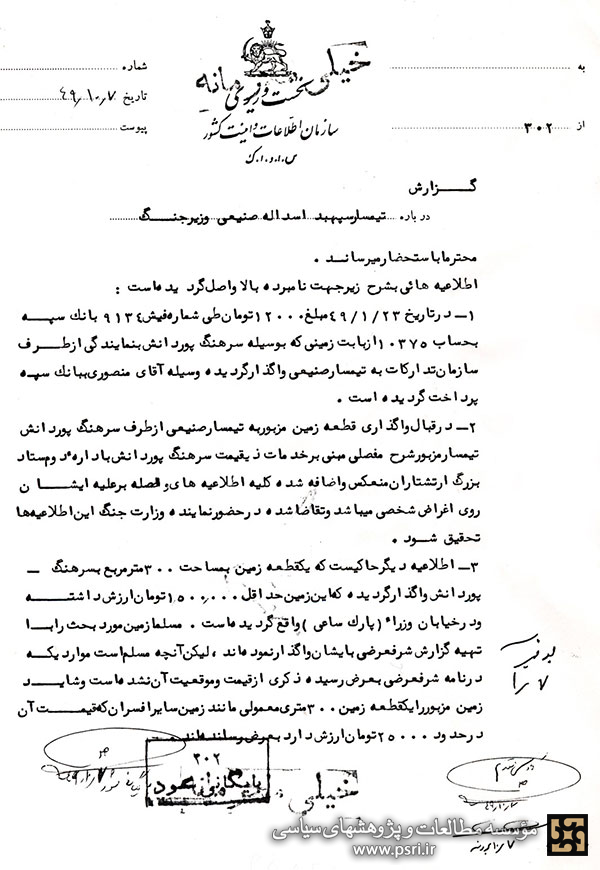 خیلی محرمانه
نخست وزیری
سازمان اطلاعات و امنیت کشور
س.ا.و.ا.ک
به
از ۳۰۲
شماره
تاریخ ۴۹٫۱۰٫۷
پیوست
گــزارش
درباره تیمسارسپهبد اسداله صنیعی وزیرجنگ
محترما باستحضار میرساند .
اطلاعیه هائی بشرح زیرجهت نامبرده بالا واصل گردیده است :
۱ــ درتاریخ ۴۹/۱/۲۳ مبلغ ۱۲۰۰۰ تومان طی شماره فیش ۹۱۳۴ بانک سپه
بحساب ۱۰۳۷۵ ازبابت زمینی که بوسیله سرهنگ پوردانش بنمایندگی ازطرف
سازمان تدارکات به تیمسارصنیعی واگذارگردیده وسیله آقای منصوری ببانک سپه
پرداخت گردیده است .
۲ــ درقبال واگذاری قطعه زمین مزبوربه تیمسارصنیعی ازطرف سرهنگ پوردانش
تیمسارمزبورشرح مفصلی مبنی برخدمات ذیقیمت سرهنگ پوردانش باداره دوم ستاد
بزرگ ارتشتاران منعکس واضافه شده کلیه اطلاعیه های واصله برعلیه ایشان
روی اغراض شخصی میباشد وتقاضا شده درحضورنماینده وزارت جنگ این اطلاعیه ها
تحقیق شود .
۳ــ اطلاعیه دیگرحاکیست که یکقطعه زمین بمساحت ۳۰۰ مترمربع بسرهنگ ــ
پوردانش واگذارگردیده که این زمین حداقل ۱۵۰۰٫۰۰۰ تومان ارزش داشته
ودرخیابان وزراء (پارک ساعی) واقع گردیده است . مسلما زمین مورد بحث رابا
تهیه گزارش شرفعرضی بایشان واگذارنموده اند ، لیکن آنچه مسلم است مواردیکه
درنامه شرفعرضی بعرض رسیده ذکری ازقیمت وموقعیت آن نشده است وشاید
زمین مزبوررایکقطعه زمین ۳۰۰ متری معمولی مانند زمین سایرافسران که قیمت آن
درحدود ۲۵۰۰۰ تومان ارزش دارد بعرض رسانده اند .
۳۰۲
بایگانی شود
خیلی
مؤسسه مطالعات و پژوهشهای سیاسی
www.psri.ir